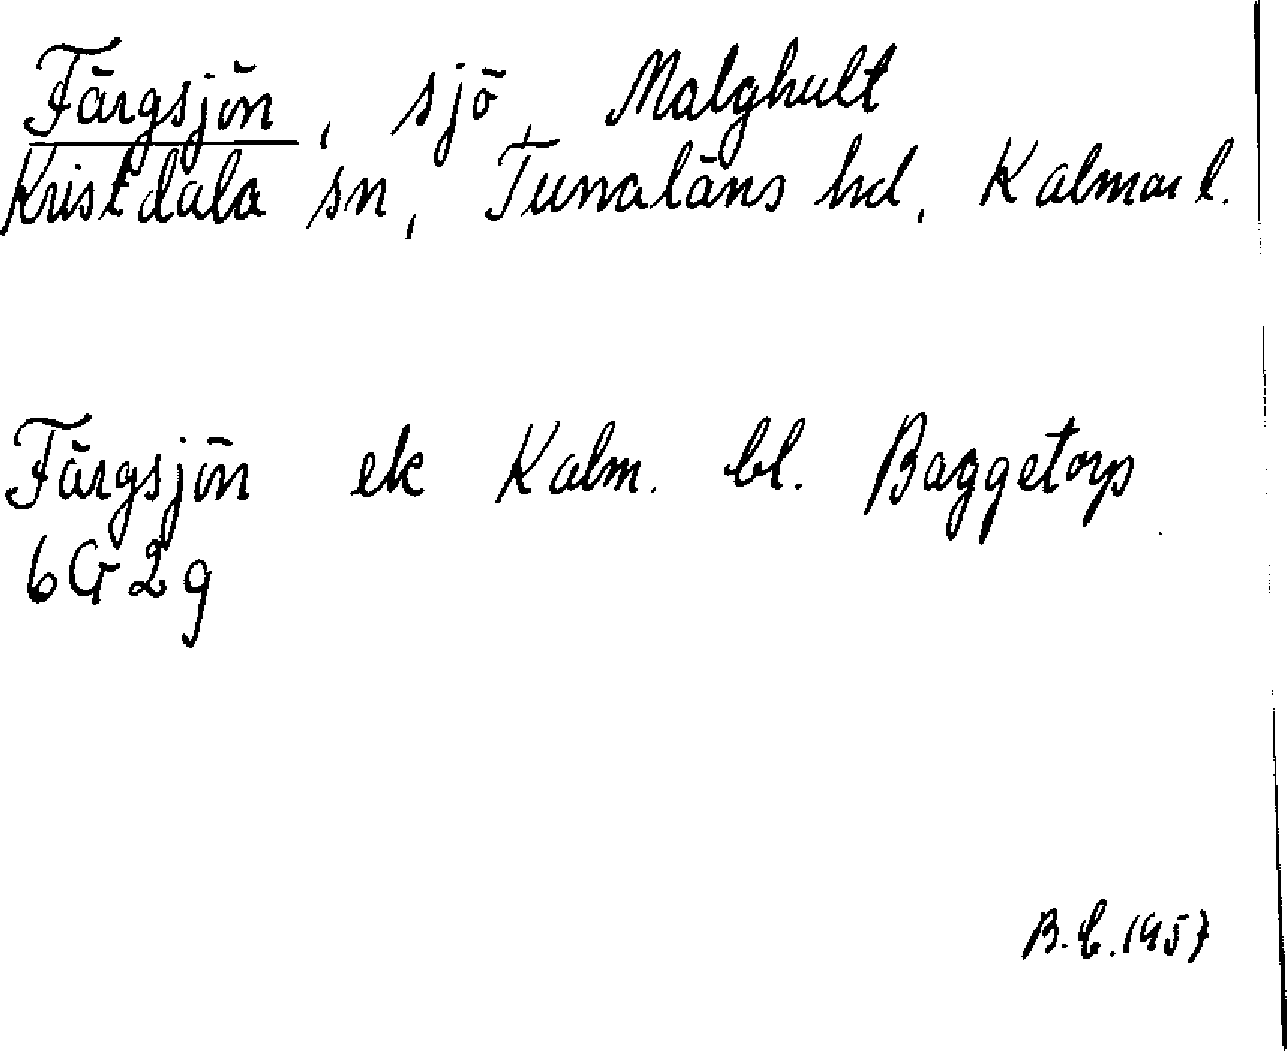 Färgsjön, sjö Malghult
Kristdala sn, Tunaläns hd, Kalmar l.
Färgsjön ek Kalm. bl. Baggetorp
6G2g
B.E. 1957